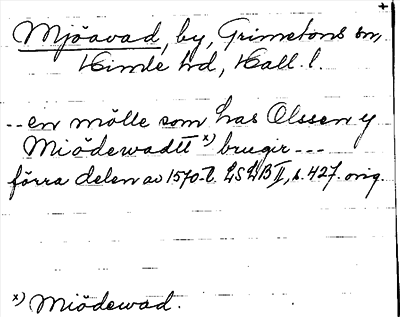 Mjöavad, by, Grimetons sn,
Himle hd, Hall. l.
-- en mölle som has Olssen y
Miödewadtt x) brugir ---
förra delen av 1570-t. LSDB II, s. 427. orig.
x) Miödewad.